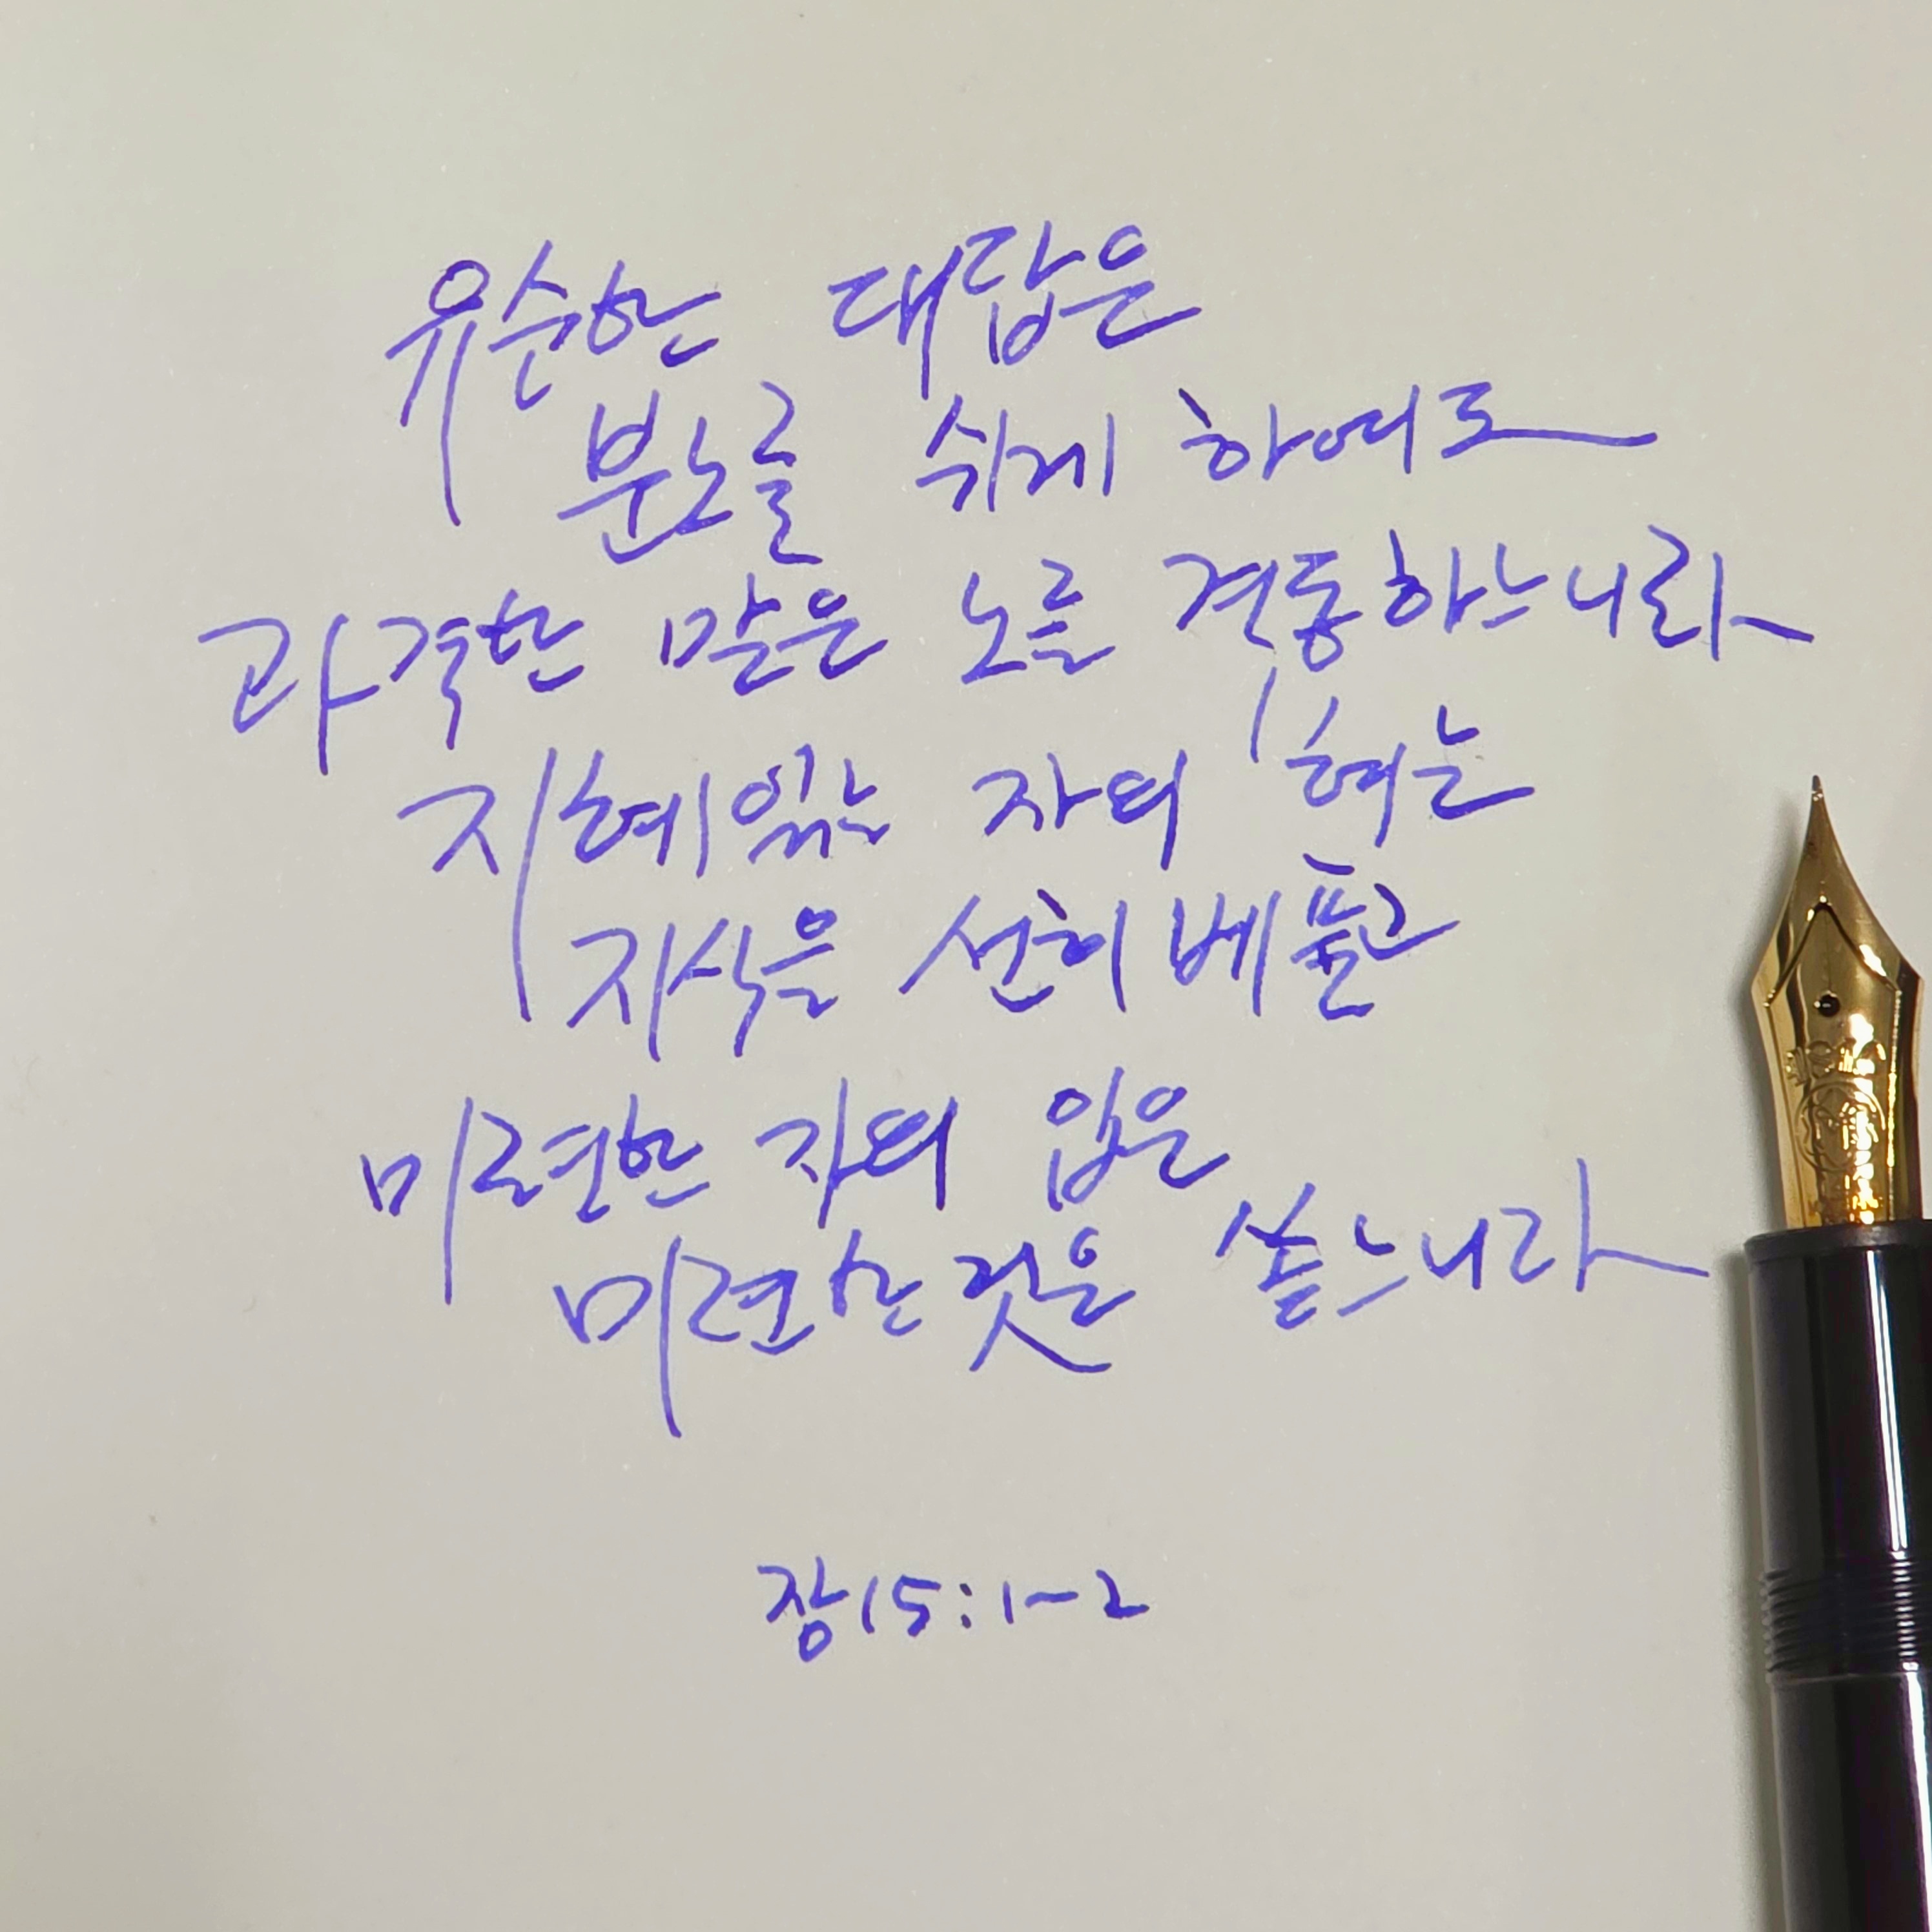 유순한 대답은
분노를 쉬게 하여도
과격한 말은 노를 격동하느니라
지혜있는 자의 혀는
지식을 선히 베풀고
미련한 자의 입은
미련한 것을 쏟느니라
잠15:1-2